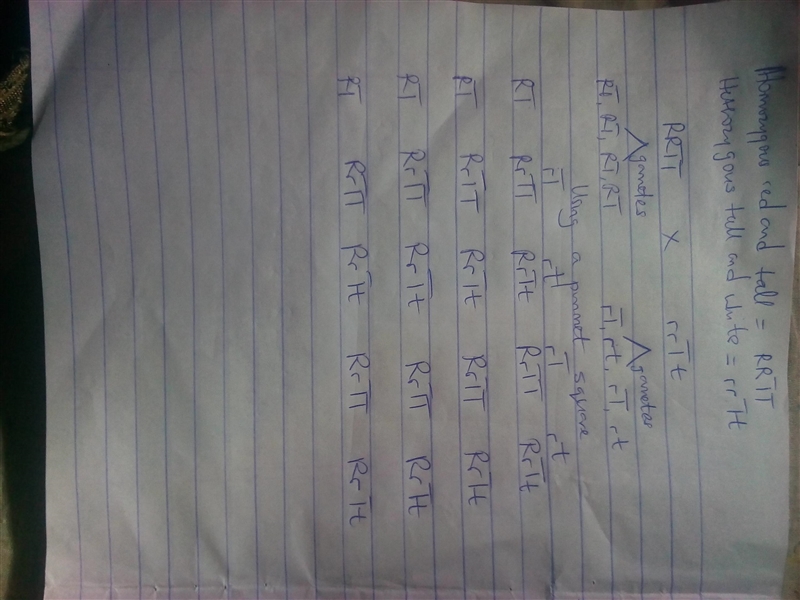 Homozygous red and tall = RRTT
Heterozygous tall and white = rrTt
RRTT x rrTt
gametes gametes
RT, RT, RT, RT rT, rt, rT, rt
Using a punnet square
rT rt rT rt
RT RrTT RrTt RrTT RrTt
RT RrTT RrTt RrTT RrTt
RT RrTT RrTt RrTT RrTt
RT RrTT RrTt RrTT RrTt